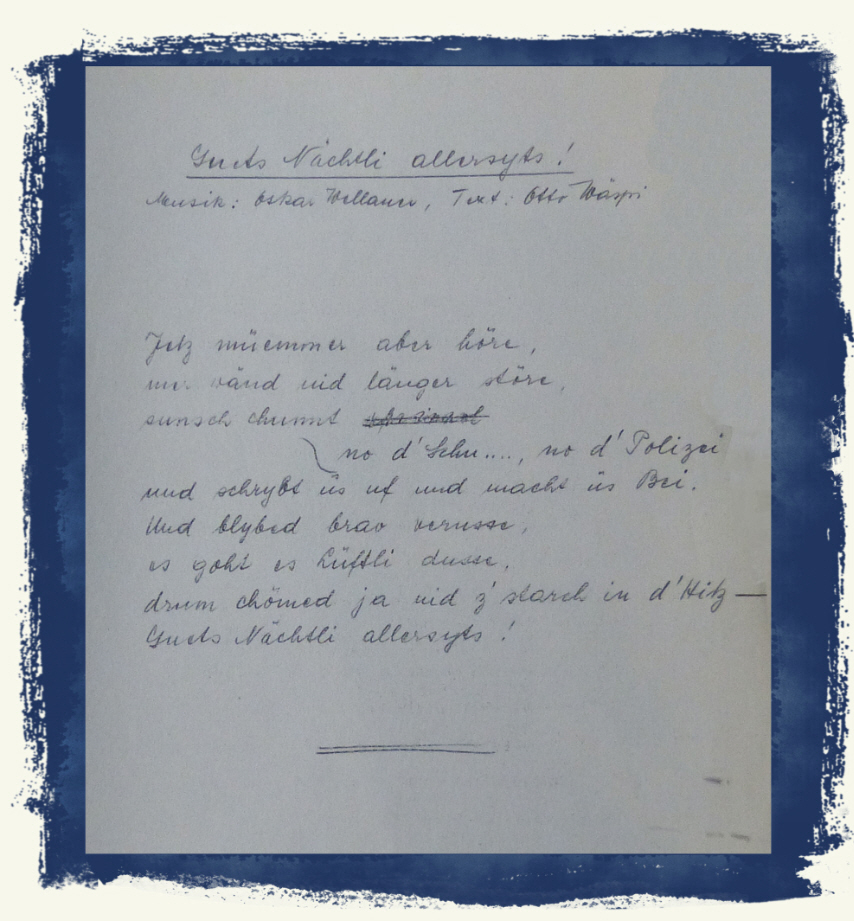 Guets Nächtli allersyts!
Musik: Oskar Wellauer, Text: Otto Wäspi
Jetz müemmer aber höre,
mer wänd nid länger störe,
sunsch chunnt
no d'Schu...., no d'Polizei
und schrybt üs uf und macht üs Bei.
Und blybed brav verusse,
es goht es Lüftli dusse,
drum chömed ja nid z'starch in d'Hitz—
Guets Nächtli allersyts!